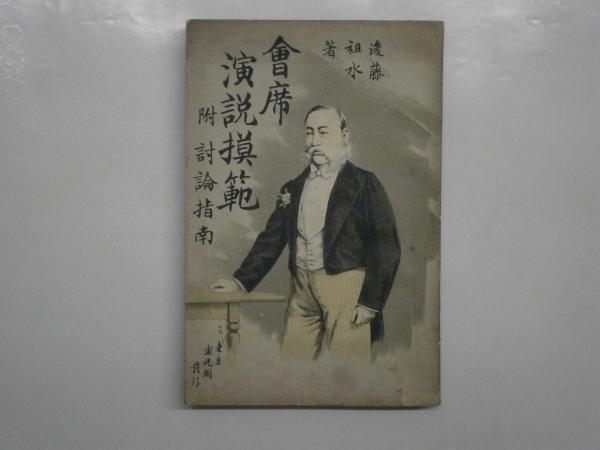 後藤
祖水
著
會席
演説摸範
附討論指南
東京
求光閣
發行